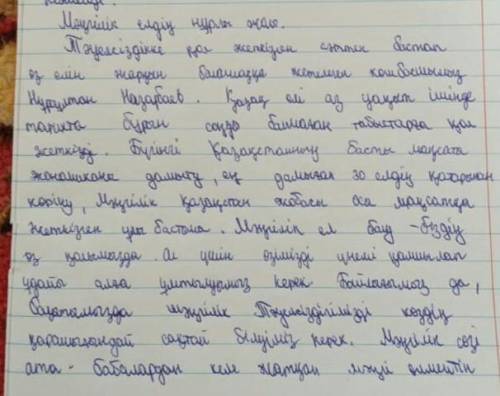 Мәңгілік елдің нұрлы жолы.
Тәуелсіздікке қол жеткізген сәттен бастап
өз елін жарқын болашаққа жетелеген көшбасшымыз
Нұрсұлтан Назарбаев. Қазақ елі аз уақыт ішінде
тарихта бұрын соңды болмаған табыстарға қол
жеткізді. Бүгінгі Қазақстанның басты мақсаты
экономикана дамыту, ең дамыған 30 елдің қатарынан
көріну, Мәңгілік Қазақстан жобасы осы мақсатқа
жеткізген ұлы бастама. Мәңгілік ел болу - біздің
өз қолымызда. Ол үшін өзімізді үнемі қамшылап
ұдайы алға ұмтылуымыз керек. Байлығымыз да,
бақытымызда мәңгілік Тәуелсіздігімізді көздің
қарашығындай сақтай білуіміз керек. Мәңгілік сөзі
ата - бабалардан келе жатқан мәңгі